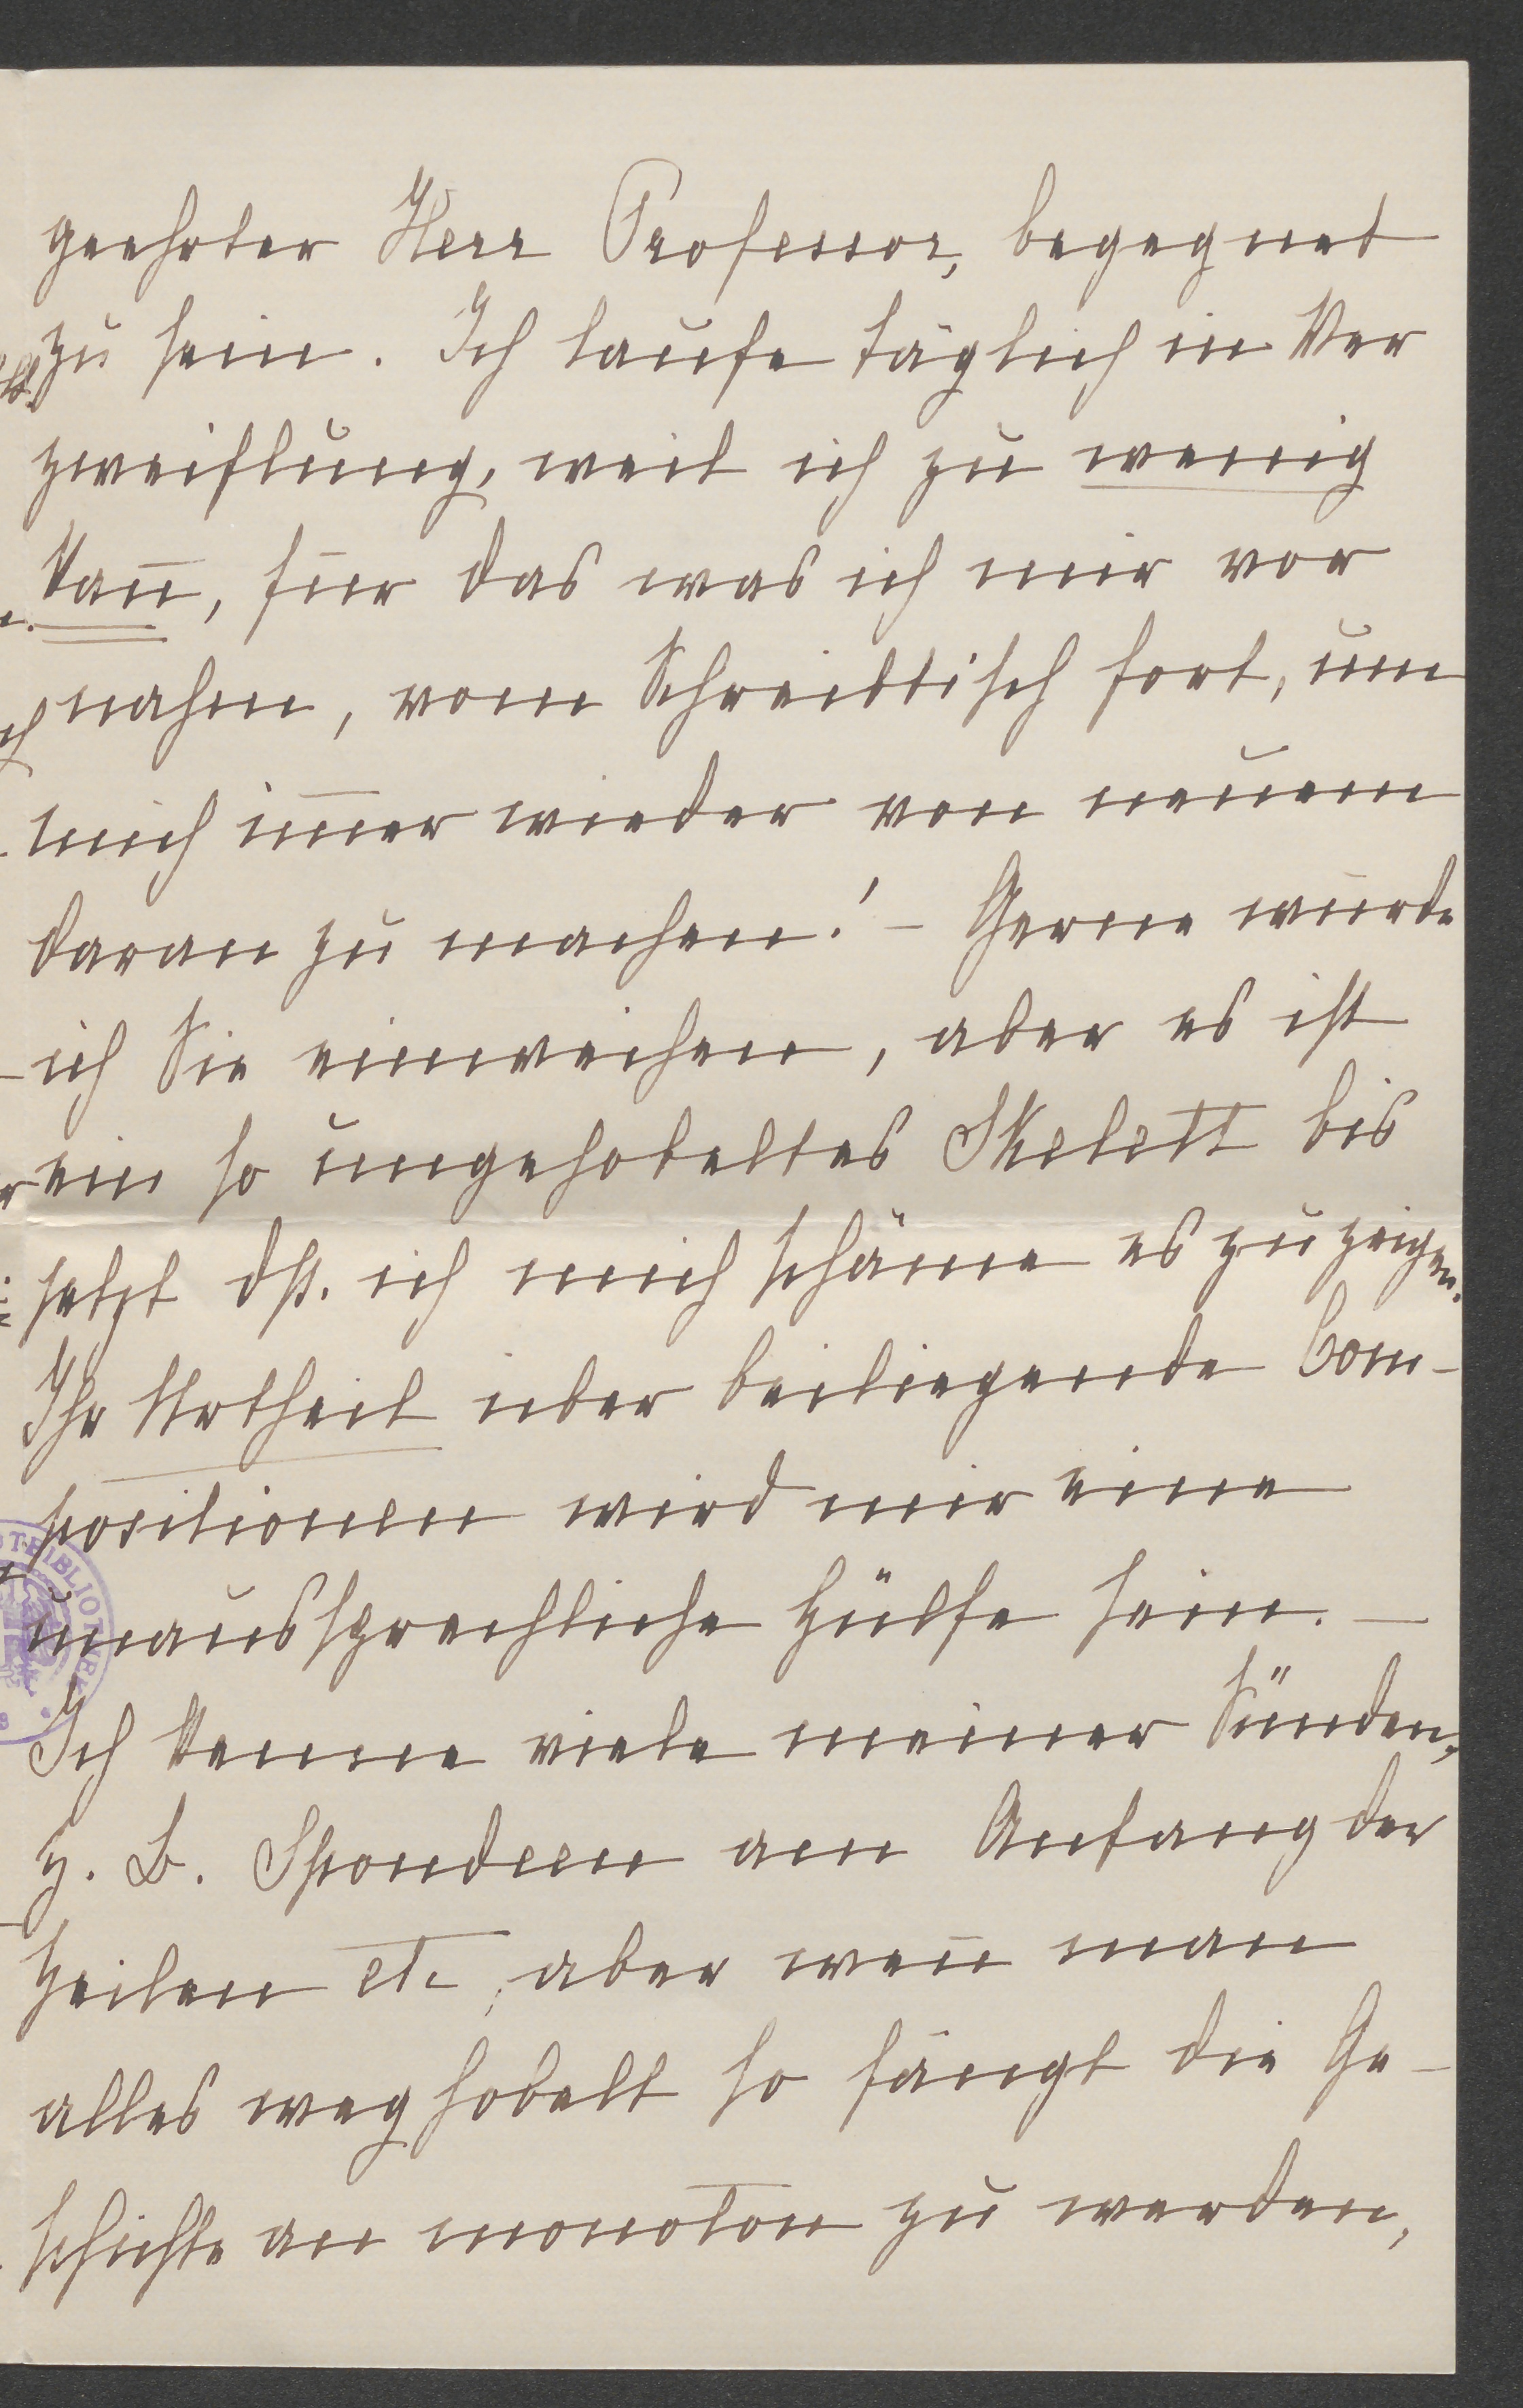 geehrter Herr Professor, begegnet
zu sein. Ich laufe täglich in Ver
zweiflung, weil ich zu wenig
kan̄, für das was ich mir vor
nahm, vom Schreibtisch fort, um
mich im̄er wieder von neuem
daran zu machen! – Gerne würde
ich Sie einweihen, aber es ist
ein so ungehobeltes Skelett bis
jetzt dß. ich mich schäme es zu zeigen.
Ihr Urtheil über beiliegende Com-
positionen wird mir eine
unaussprechliche Hülfe sein. –
Ich kenne viele meiner Sünden,
z. B. Spondeen am Anfang der
Zeilen etc, aber wen̄ man
alles weg hobelt so fängt die Ge-
schichte an monoton zu werden,